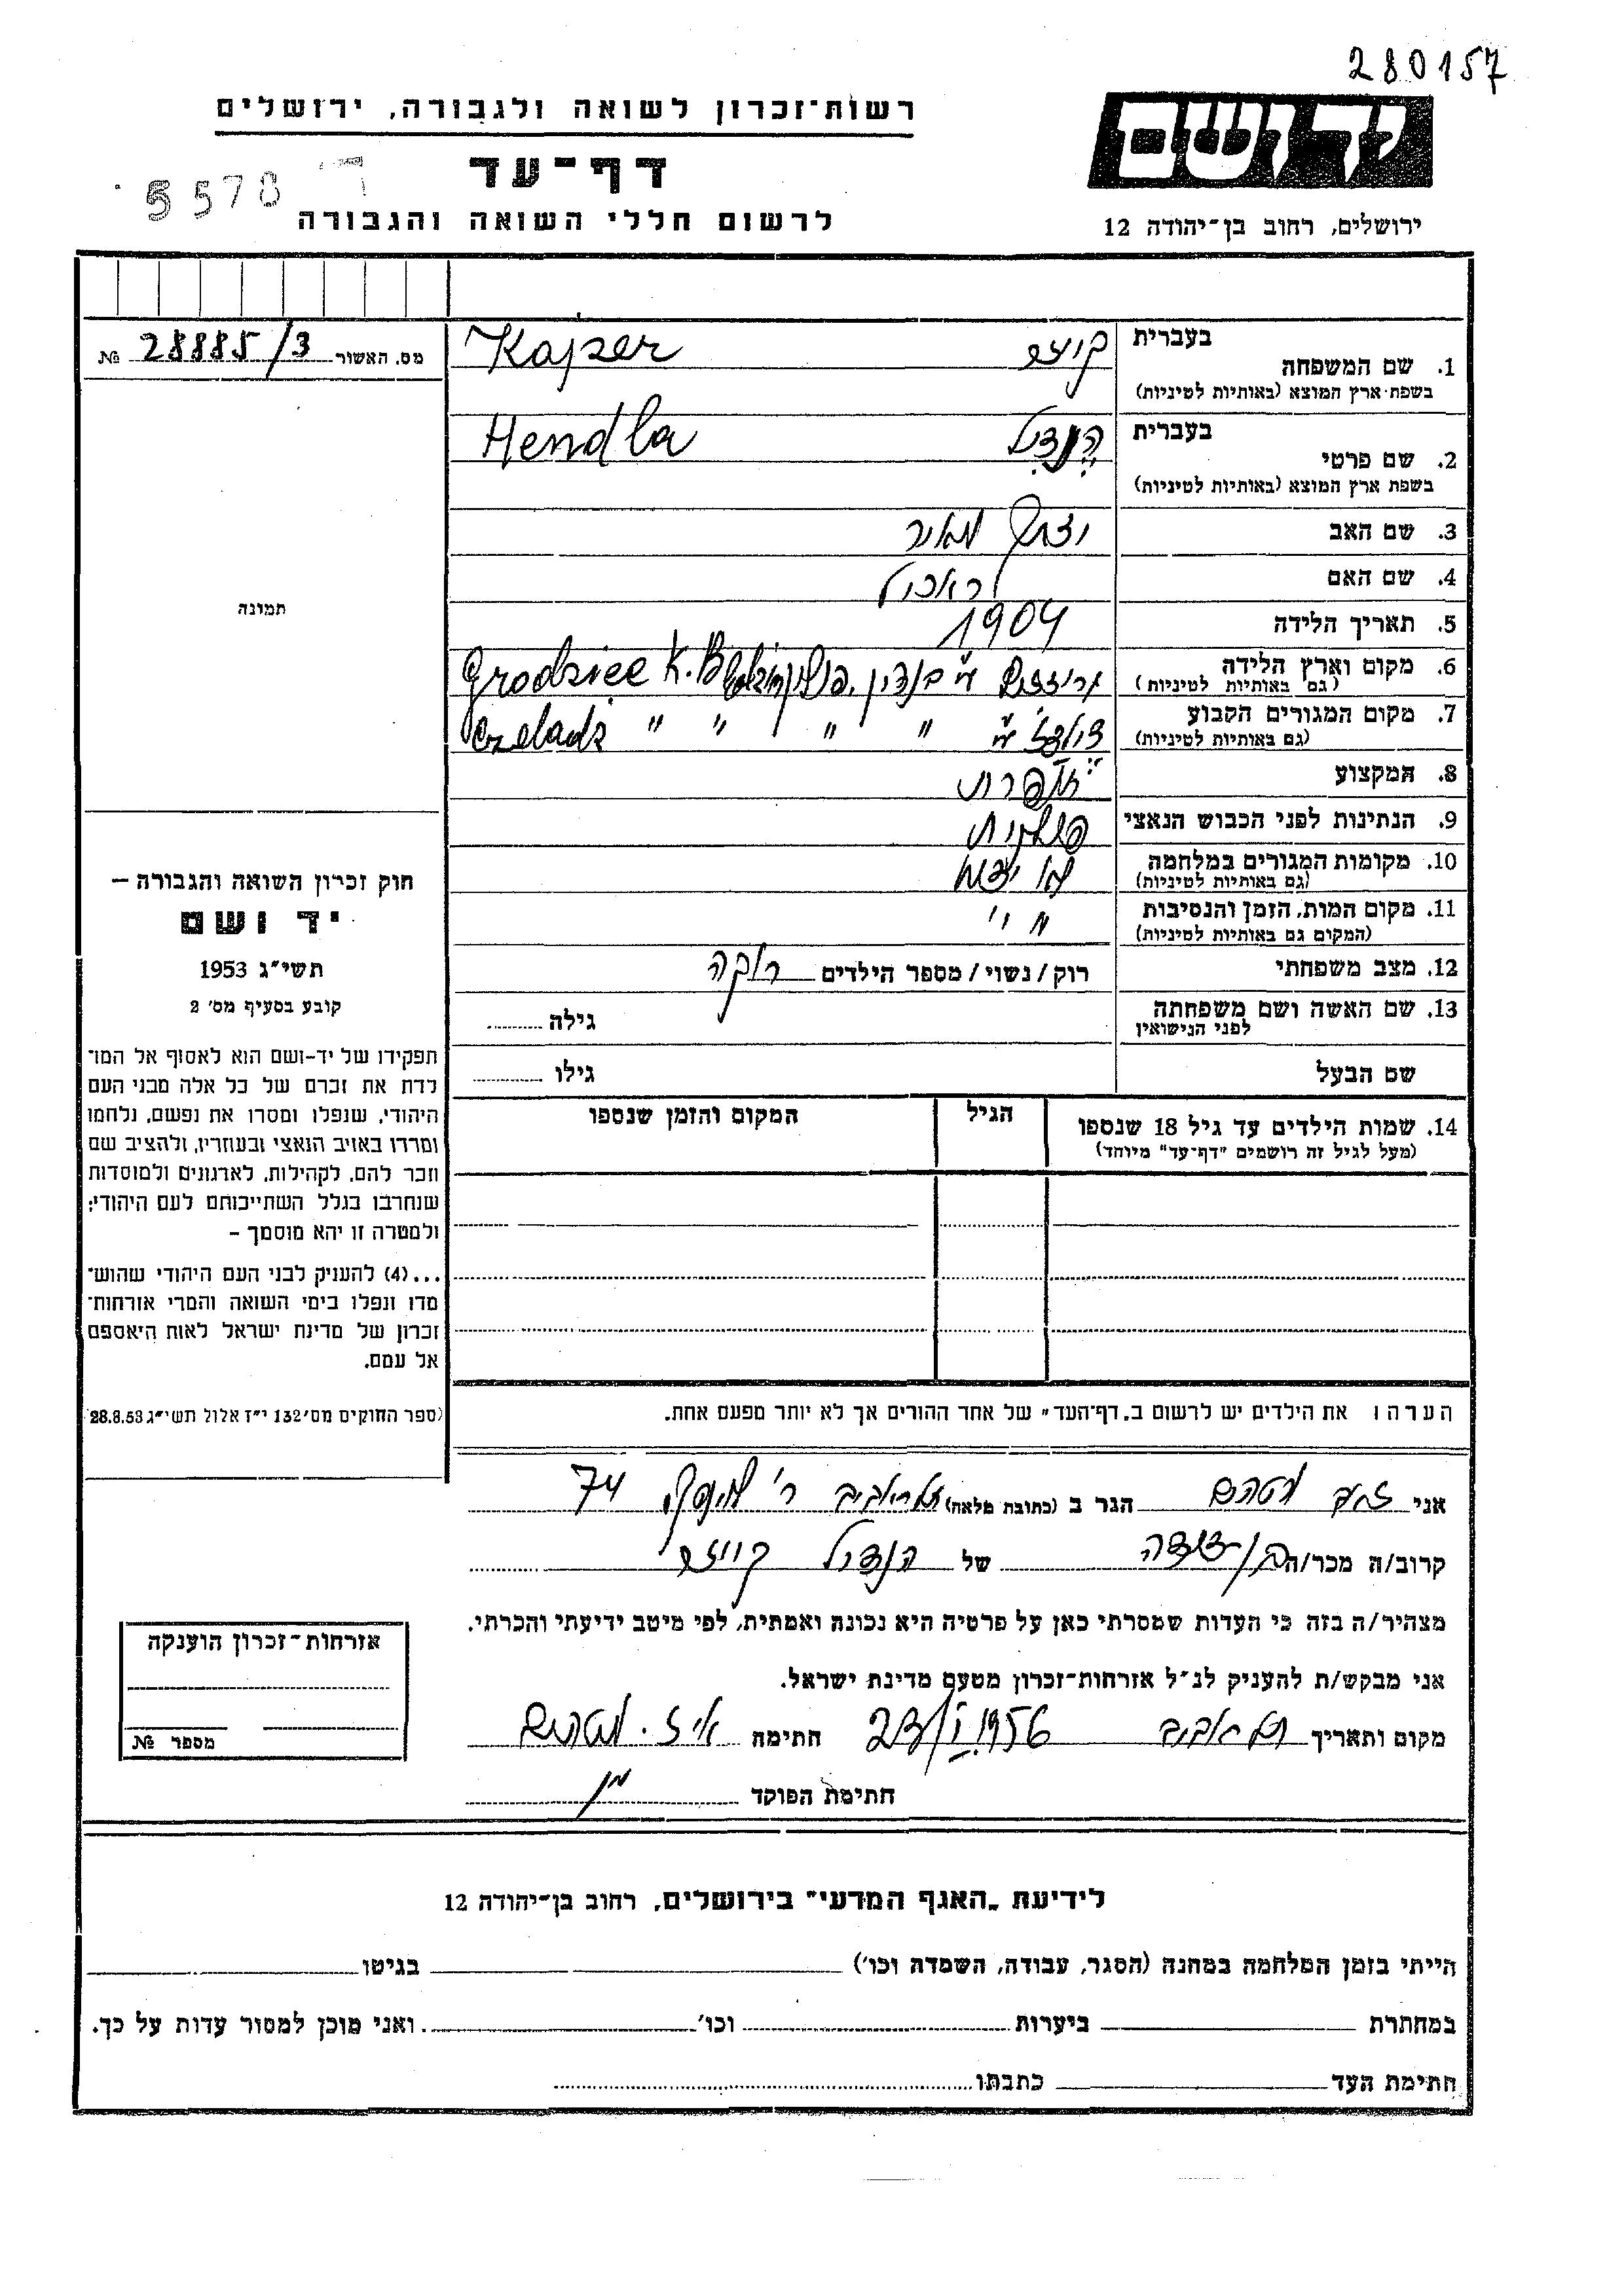 280157
רשות־זכרון לשואה ולגבורה, ירושלים
יד ושם
דף־עד
5578
לרשום חללי השואה והגבורה
ירושלים, רחוב בן־יהודה 12
מס. האשור 28885/3 №
בעברית
1. שם המשפחה Kajzer
בשפת־ארץ המוצא (באותיות לטיניות)
בעברית הנדל
2. שם פרטי Hendla
בשפת ארץ המוצא (באותיות לטיניות)
3. שם האב יצחק מאיר
4. שם האם ראכל
5. תאריך הלידה 1904
6. מקום וארץ הלידה Grodziec K.
(גם באותיות לטיניות)
7. מקום המגורים הקבוע Czeladz " " " "
(גם באותיות לטיניות)
8. המקצוע תופרת
9. הנתינות לפני הכבוש הנאצי פולנית
10. מקומות המגורים במלחמה לא ידוע
(גם באותיות לטיניות)
11. מקום המות, הזמן והנסיבות
(המקום גם באותיות לטיניות)
12. מצב משפחתי רוק/נשוי/מספר הילדים רוקה
13. שם האשה ושם משפחתה גילה
לפני הנישואין
שם הבעל גילו
14. שמות הילדים עד גיל 18 שנספו הגיל המקום והזמן שנספו
(מעל לגיל זה רושמים "דף־עד" מיוחד)
הערה: את הילדים יש לרשום ב„דף־העד" של אחד ההורים אך לא יותר מפעם אחת.
תמונה
חוק זכרון השואה והגבורה –
יד ושם
תשי"ג 1953
קובע בסעיף מס' 2
תפקידו של יד-ושם הוא לאסוף אל המו־
לדת את זכרם של כל אלה מבני העם
היהודי, שנפלו ומסרו את נפשם, נלחמו
ומרדו באויב הנאצי ובעוזריו, ולהציב שם
וזכר להם, לקהילות, לארגונים ולמוסדות
שנחרבו בגלל השתייכותם לעם היהודי;
ולמטרה זו יהא מוסמך –
...(4) להעניק לבני העם היהודי שהוש־
מדו ונפלו בימי השואה והמרי אזרחות־
זכרון של מדינת ישראל לאות היאספם
אל עמם.
(ספר החוקים מס' 132 י"ז אלול תשי"ג 28.8.53)
אני הגר ב (כתובת מלאה) תל אביב רח' 74
קרוב/ה מכר/ה בן-דודה של הנדל קייזר
מצהיר/ה בזה כי העדות שמסרתי כאן על פרטיה היא נכונה ואמתית, לפי מיטב ידיעתי והכרתי.
אני מבקש/ת להעניק לנ"ל אזרחות־זכרון מטעם מדינת ישראל.
מקום ותאריך תל אביב 23/I 1956 חתימה
חתימת הפוקד
אזרחות־זכרון הוענקה
מספר №
לידיעת „האגף המדעי" בירושלים, רחוב בן־יהודה 12
הייתי בזמן המלחמה במחנה (הסגר, עבודה, השמדה וכו') בגיטו
במחתרת ביערות וכו' ואני מוכן למסור עדות על כך.
חתימת העד כתבתו